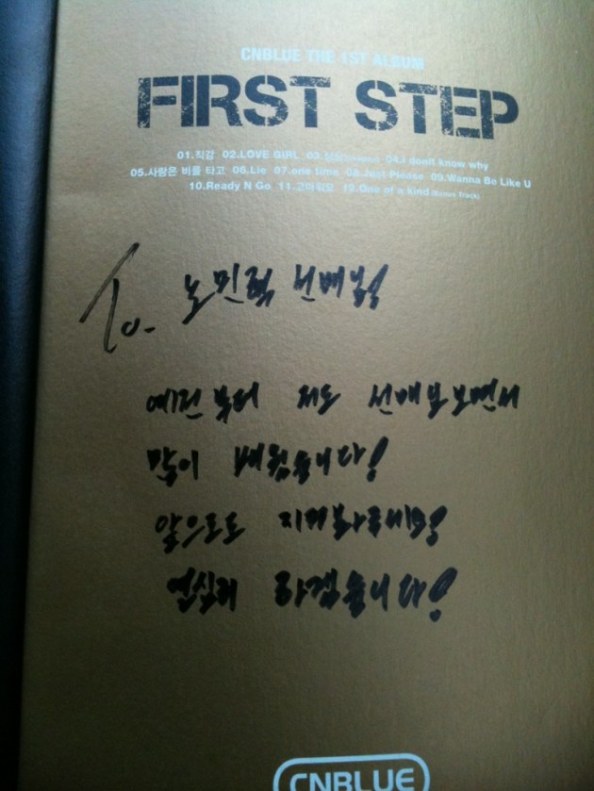 CNBLUE THE 1ST ALBUM
FIRST STEP
01.직감 02.LOVE GIRL 03. 04.I don't know why
05.사랑은 비를 타고 06.Lie 07.one time 08.Just Please 09.Wanna Be Like U
10.Ready N Go 11. 12.One of a kind (Bonus Track)
To. 노민혁 선배님!
예전부터 저도 선배보보면서
많이 배웠습니다!
앞으로도 지켜봐주세요!
열심히 하겠습니다!
CNBLUE